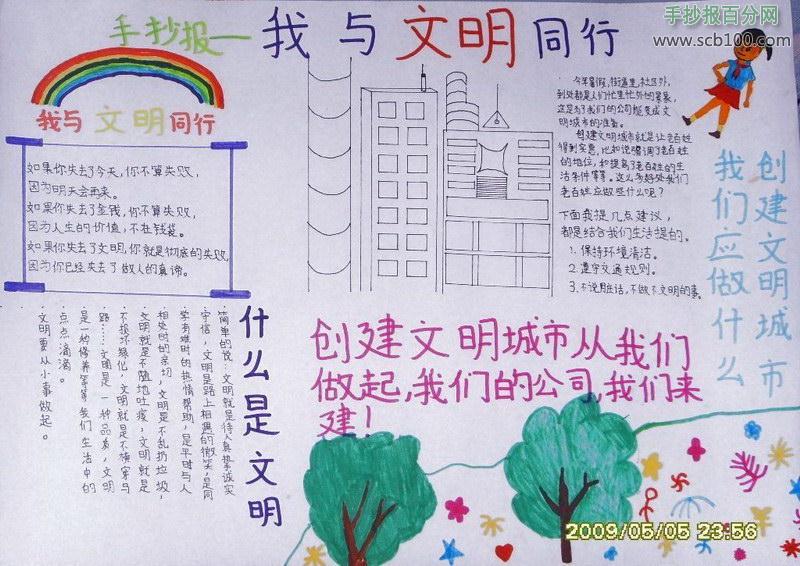 手抄报百分网
www.scb100.com
手抄报一我与文明同行
我与文明同行
如果你失去了今天,你不算失败,
因为明天会再来。
如果你失去了金钱,你不算失败,
因为人生的价值,不在钱袋。
如果你失去了文明,你就是彻底的失败,
因为你已经失去了做人的真谛。
今年暑假,街道里,社区外,
到处都是人们忙里忙外的景象,
这是为了我们的公司能变成文
明城市的准备。
创建文明城市就是让老百姓
得到实惠,
的地位,和提高了老百姓的生
活条件等等。这么多好处我们
老百姓应做些什么呢?
下面我提几点建议,
都是结合我们生活提的。
1.保持环境清洁。
2.遵守交通规则。
3.不说脏话,不做不文明的事。
创建文明城市
我们应做什么
什么是文明
简单的说:文明就是待人真挚诚实
守信,文明是路上相遇的微笑,是同
学有难时的热情帮助,是平时与人
相处时的亲切,文明是不乱扔垃圾,
文明就是不随地吐痰,文明就是
不损坏绿化,文明就是不横穿马
路……文明是一种品质,文明
是一种修养等等我们生活中的
点点滴滴。
文明要从小事做起。
创建文明城市从我们
做起,我们的公司,我们来
建!
2009/05/05 23:56